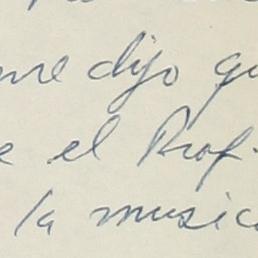 me dijo qu
e el Prof.
la music